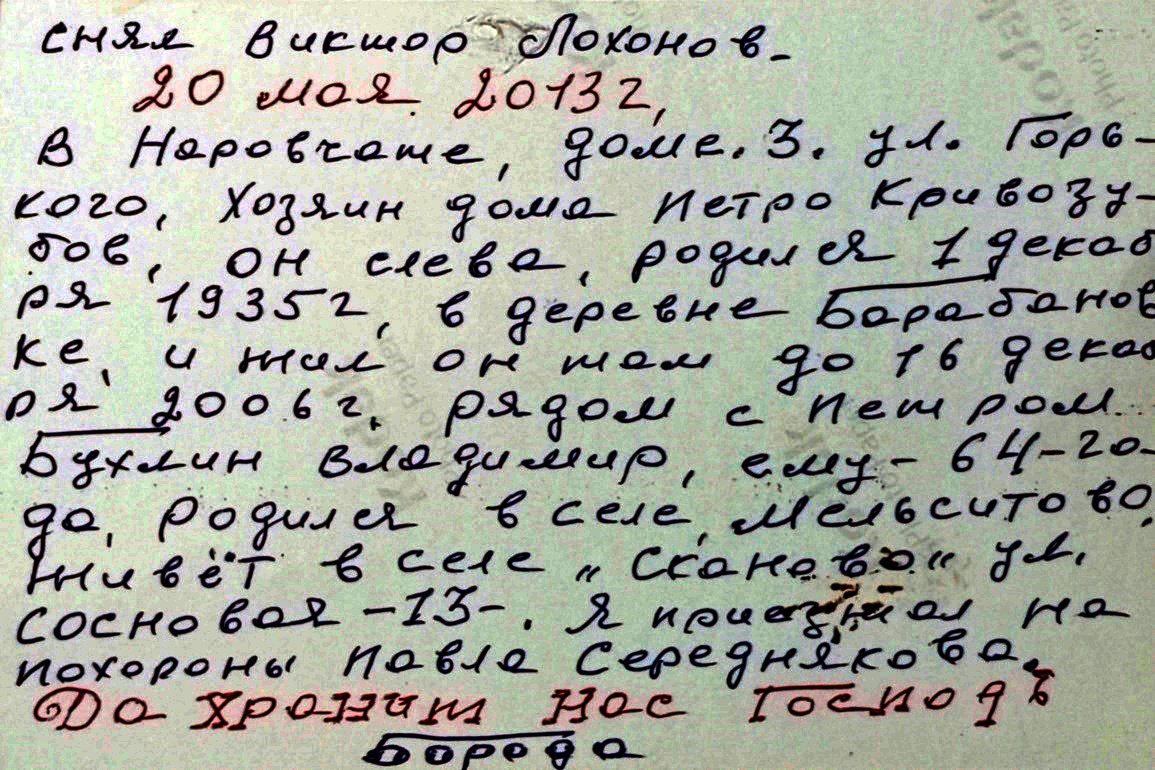 снял Виктор Лохонов.
20 мая. 2013 г,
В Наровчате, доме. 3. ул. Горь-
кого, Хозяин дома Петро Кривозу-
бов, он слева, родился 1 декаб
ря 1935 г, в деревне Барабанов
ке, и жил он там до 16 декаб
ря 2006 г. рядом с Петром
Бухлин Владимир, ему - 64 - го-
да, родился в селе, Мельситово,
живёт в селе „Сканово“ ул.
Сосновая - 13 -. Я приезжал на
похороны Павла Середнякова.
Да Хранит Нас Господь
Борода